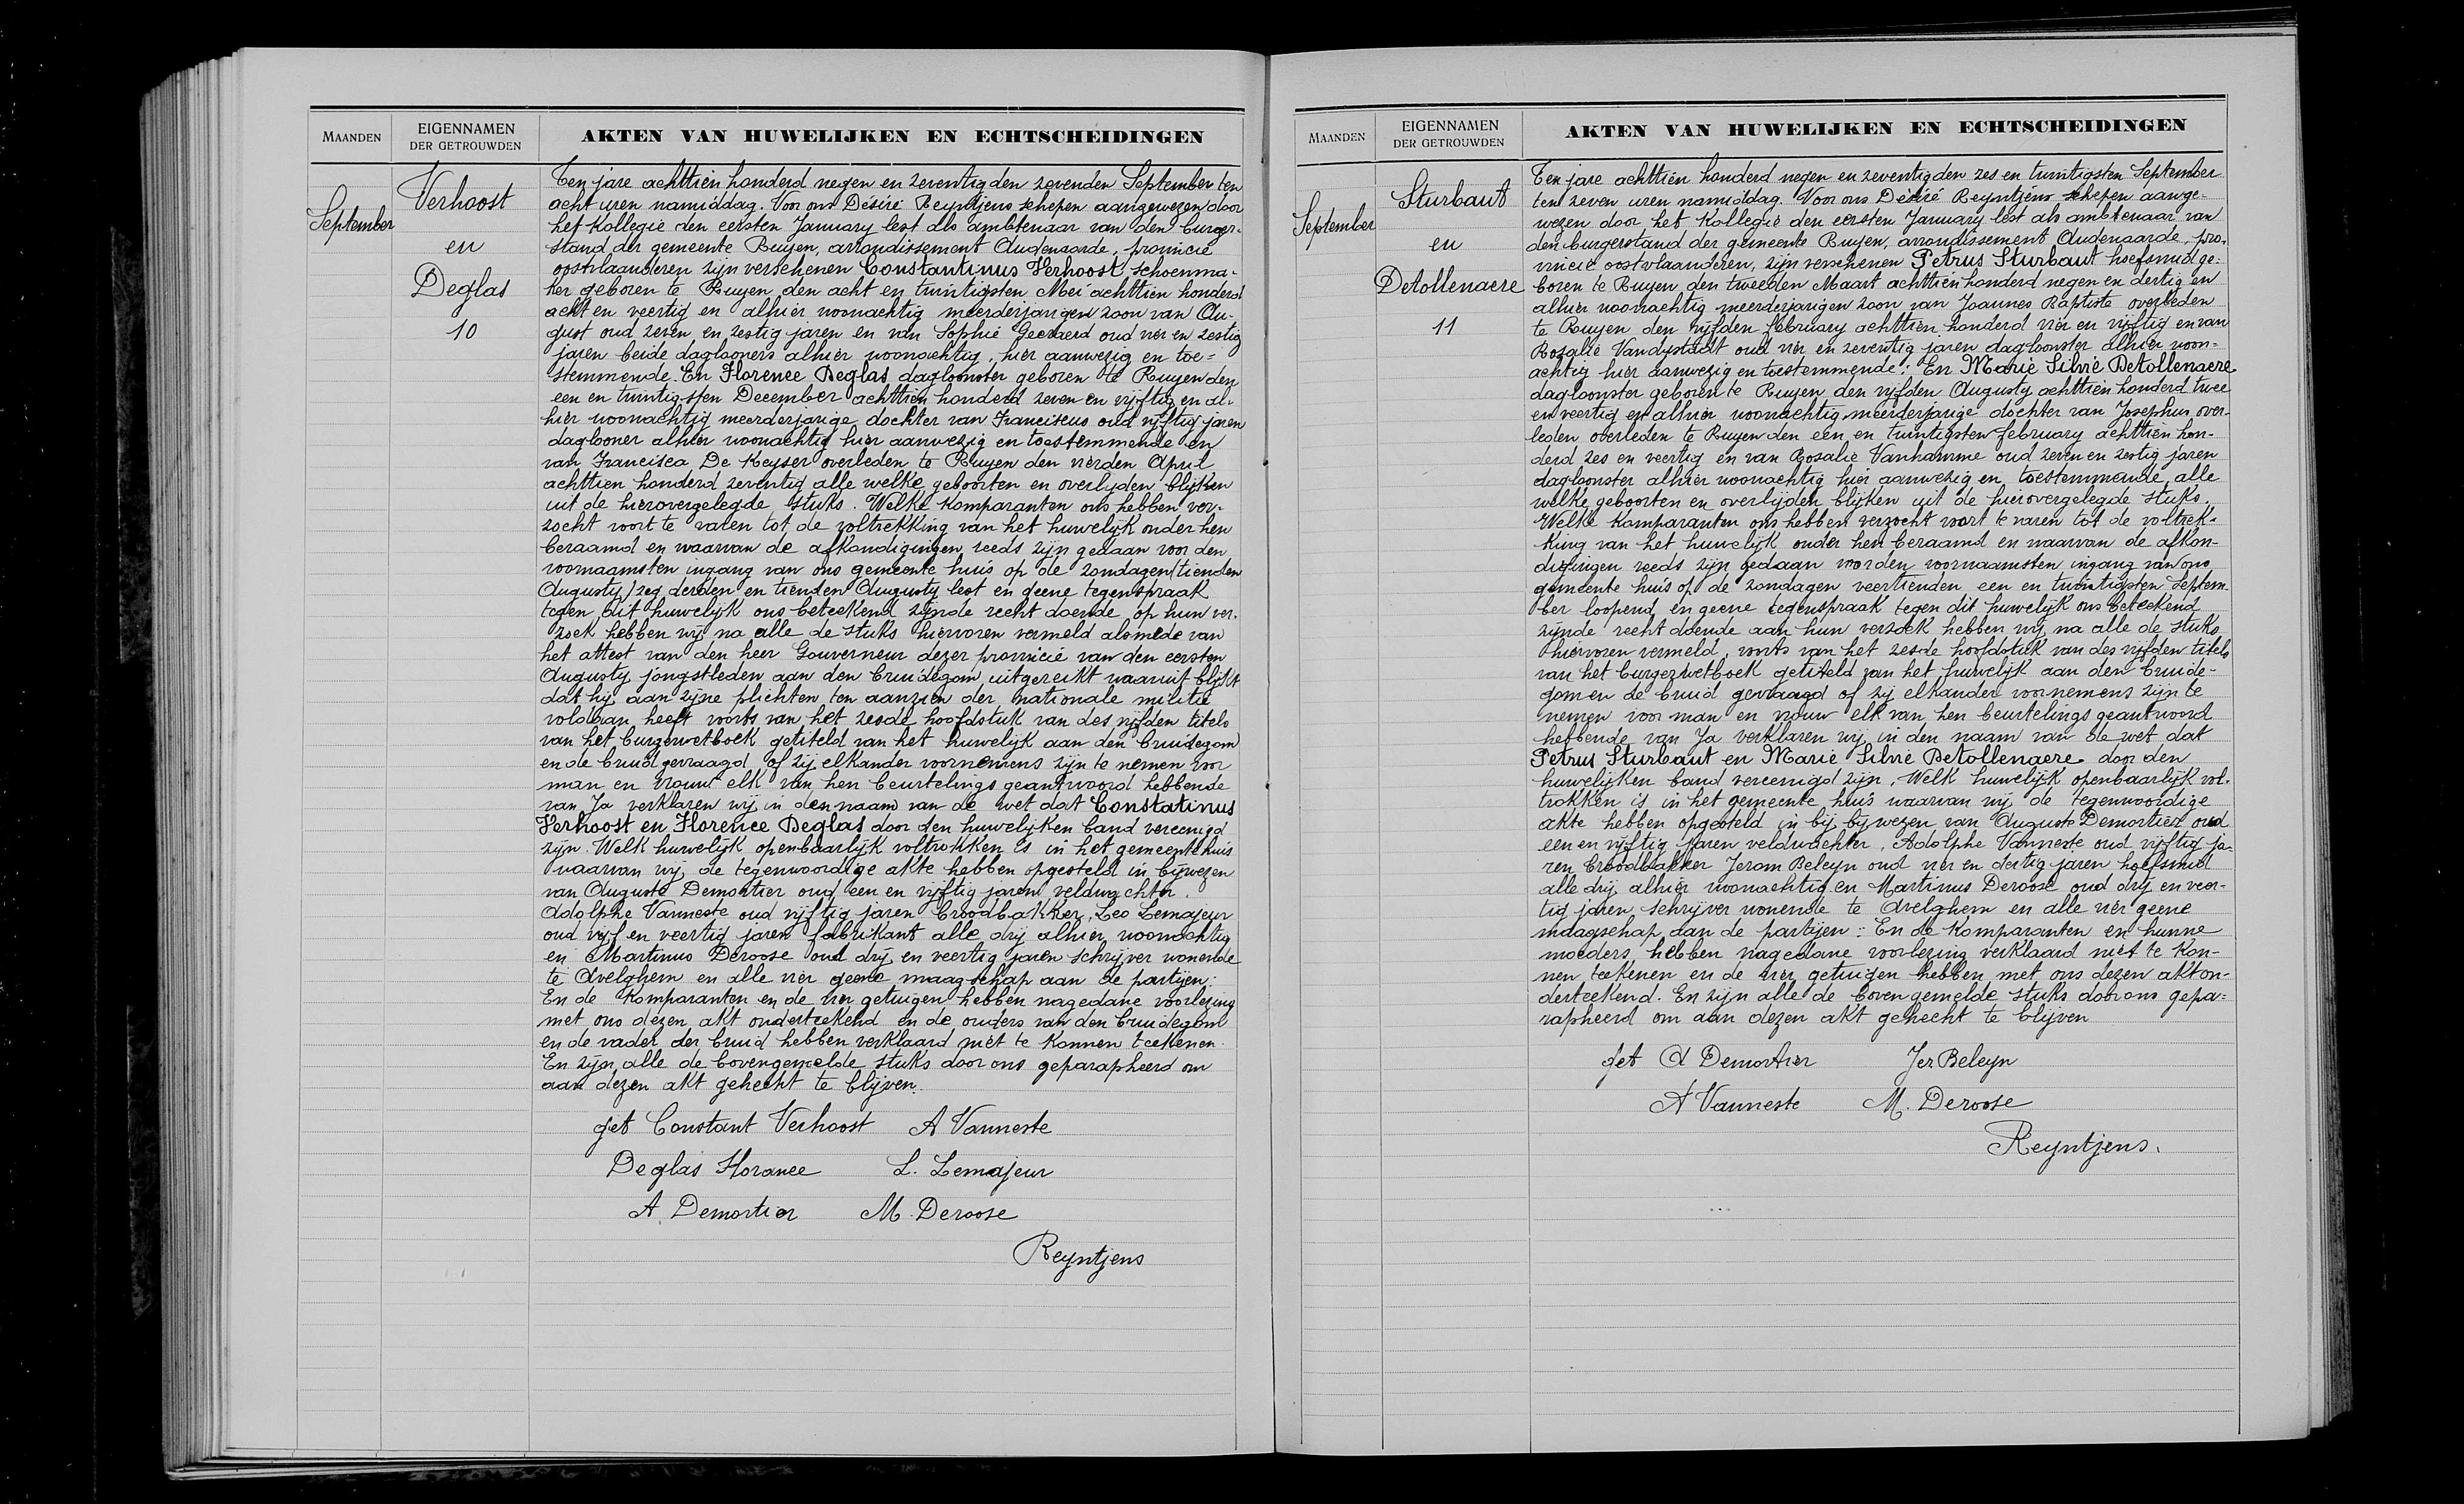 MAANDEN
EIGENNAMEN
DER GETROUWDEN
AKTEN VAN HUWELIJKEN EN ECHTSCHEIDINGEN
September
Verhoost
en
Deglas
10
Ten jare achttien honderd negen en zeventig den zevenden September ten
acht uren namiddag. Voor ons Désiré Reyntjens schepen aangewezen door
het Kollegie den eersten January lest als ambtenaar van den burger-
stand der gemeente Ruyen, arrondissement Audenaarde, provincie
oostvlaanderen zijn verschenen Constantinus Verhoost, schoenma-
ker geboren te Ruyen den acht en twintigsten Mei achttien honderd
acht en veertig en alhier woonachtig meerderjarigen zoon van Au-
gust oud zeven en zestig jaren en van Sophie Geenaerd oud vier en zestig
jaren beide daglooners alhier woonachtig, hier aanwezig en toe=
stemmende. En Florence Deglas dagloonster geboren te Ruyen den
een en twintigsten December achttien honderd zeven en vijftig en al-
hier woonachtig meerderjarige dochter van Franciscus oud vijftig jaren
daglooner alhier woonachtig hier aanwezig en toestemmende en
van Francisca De Keyser overleden te Ruyen den vierden April
achttien honderd zeventig alle welke geboorten en overlyden blijken
uit de hierovergelegde stuks. Welke Komparanten ons hebben ver-
zocht voort te varen tot de voltrekking van het huwelijk onder hen
beraamd en waarvan de afkondigingen reeds zijn gedaan voor den
voornaamsten ingang van ons gemeente huis op de zondagen (tienden
Augusty) zeg derden en tienden Augusty lest en geene tegenspraak
tegen dit huwelyk ons beteekend zynde recht doende op hun ver-
zoek hebben wij na alle de stuks hiervoren vermeld alsmede van
het attest van den heer Gouverneur dezer provincie van den eersten
Augusty jongstleden aan den bruidegom uitgereikt waaruit blijkt
dat hij aan zijne plichten ten aanzien der nationale militie
voldaan heeft voorts van het zesde hoofdstuk van des vijfden titels
van het burgerwetboek getiteld van het huwelijk aan den bruidegom
en de bruid gevraagd of zij elkander voornemens zijn te nemen voor
man en vrouw elk van hen beurtelings geantwoord hebbende
van Ja verklaren wij in den naam van de wet dat Constatinus
Verhoost en Florence Deglas door den huwelijken band vereenigd
zijn. Welk huwelijk openbaarlijk voltrokken is in het gemeentehuis
waarvan wij de tegenwoordige akte hebben opgesteld in bijwezen
van Auguste Demortier oud een en vijftig jaren veldwachter.
Adolphe Vanneste oud vijftig jaren broodbakker, Leo Lemajeur
oud vijf en veertig jaren fabrikant alle drij alhier woonachtig
en Martinus Deroose oud drij en veertig jaren schrijver wonende
te Avelghem en alle vier geene maagschap aan de partijen:
En de Komparanten en de vier getuigen hebben nagedane voorlezing
met ons dezen akt onderteekend en de ouders van den bruidegom
en de vader der bruid hebben verklaard niet te konnen teekenen.
En zijn alle de bovengemelde stuks door ons geparapheerd om
aan dezen akt gehecht te blijven.
get Constant Verhoost A Vanneste
Deglas Florance L. Lemajeur
A. Demortier M. Deroose
Reyntjens
MAANDEN
EIGENNAMEN
DER GETROUWDEN
AKTEN VAN HUWELIJKEN EN ECHTSCHEIDINGEN
September
Sturbaut
en
Detollenaere
11
Ten jare achttien honderd negen en zeventig den zes en twintigsten September
ten zeven uren namiddag. Voor ons Désiré Reyntjens schepen aange-
wezen door het Kollegie den eersten January lest als ambtenaar van
den burgerstand der gemeente Ruyen, arrondissement Audenaarde, pro-
vincie oostvlaanderen, zijn verschenen Petrus Sturbaut hoefsmid ge-
boren te Ruyen den tweeden Maart achttien honderd negen en dertig en
alhier woonachtig meerderjarigen zoon van Joannes Baptiste overleden
te Ruyen den vijfden february achttien honderd vier en vijftig en van
Rosalie Vandystadt oud vier en zeventig jaren dagloonster alhier woon-
achtig hier aanwezig en toestemmende: En Marie Silvie Detollenaere
dagloonster geboren te Ruyen den vijfden Augusty achttien honderd twee
en veertig en alhier woonachtig meerderjarige dochter van Josephus over-
leden overleden te Ruyen den een en twintigsten february achttien hon-
derd zes en veertig en van Rosalie Vanhamme oud zeven en zestig jaren
dagloonster alhier woonachtig hier aanwezig en toestemmende, alle
welke geboorten en overlijden blijken uit de hierovergelegde stuks.
Welke Komparanten ons hebben verzocht voort te varen tot de voltrek-
king van het huwelijk onder hen beraamd en waarvan de afkon-
digingen reeds zijn gedaan voorden voornaamsten ingang van ons
gemeente huis op de zondagen veertienden een en twintigsten Septem-
ber loopend en geene tegenspraak tegen dit huwelijk ons beteekend
zijnde recht doende aan hun verzoek hebben wij na alle de stuks
hiervoren vermeld, voorts van het zesde hoofdstuk van des vijfden titels
van het burgerwetboek getiteld van het huwelijk aan den bruide-
gom en de bruid gevraagd of zij elkander voornemens zijn te
nemen voor man en vrouw elk van hen beurtelings geantwoord
hebbende van Ja verklaren wij in den naam van de wet dat
Petrus Sturbaut en Marie Silvie Detollenaere door den
huwelijken band vereenigd zijn. Welk huwelijk openbaarlijk vol-
trokken is in het gemeente huis waarvan wij de tegenwoordige
akte hebben opgesteld in bij bijwezen van Auguste Demortier oud
een en vijftig jaren veldwachter, Adolphe Vanneste oud vijftig ja-
ren broodbakker Jerom Beleyn oud vier en dertig jaren hoefsmid
alle drij alhier woonachtig en Martinus Deroose oud drij en veer-
tig jaren schrijver wonende te Avelghem en alle vier geene
mdagschap aan de partijen: En de Komparanten en hunne
moeders hebben nagedane voorlezing verklaard niet te kon-
nen teekenen en de vier getuigen hebben met ons dezen akt on-
derteekend. En zijn alle de bovengemelde stuks door ons gepa-
rapheerd om aan dezen akt gehecht te blijven
get A Demortier Jer Beleyn
A Vanneste M. Deroose
Reyntjens.